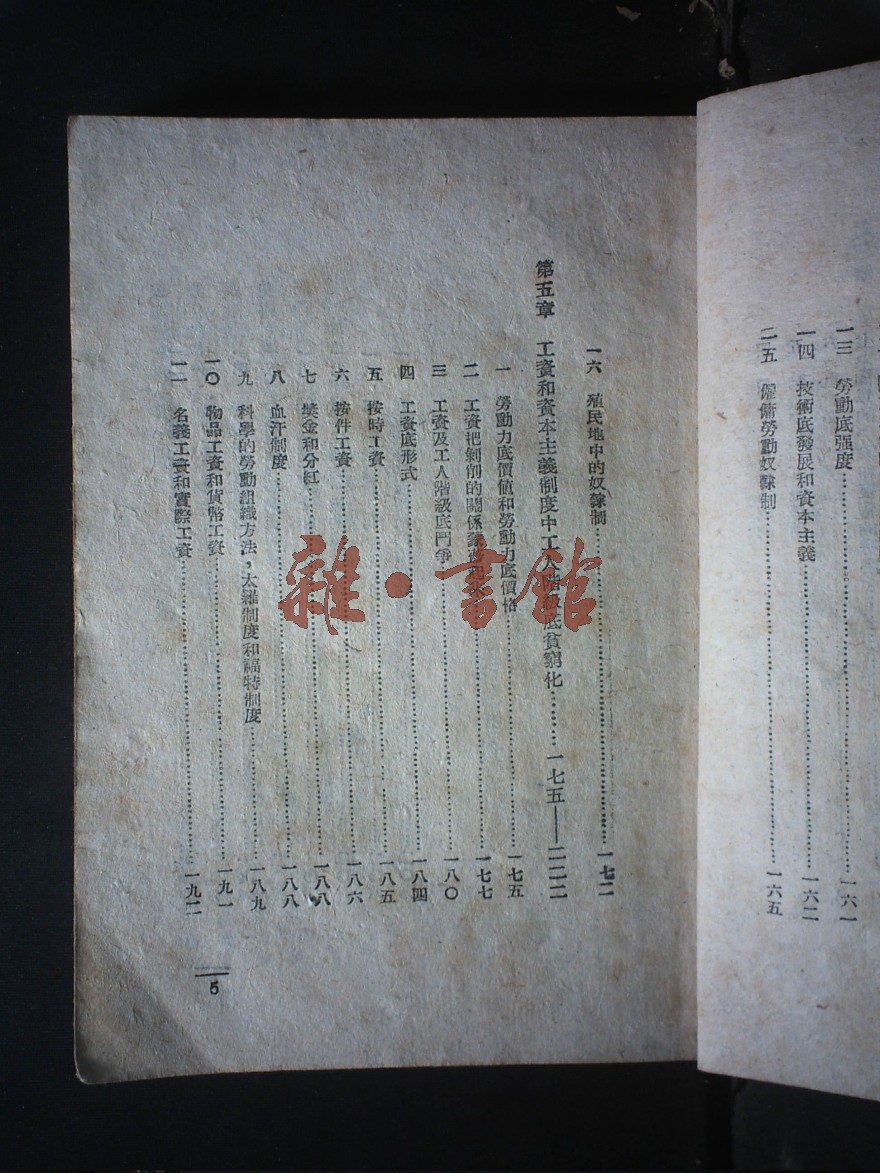 一三 勞動底强度……一六一
一四 技術底發展和資本主義……一六二
一五 僱傭勞動奴隸制……一六五
一六 殖民地中的奴隸制……一七二
第五章 工資和資本主義制度中工人階級底貧窮化……一七五——二二二
一 勞動力底價値和勞動力底價格……一七五
二 工資把剝削的關係……一七七
三 工資及工人階級底鬥爭……一八〇
四 工資底形式……一八四
五 按時工資……一八五
六 按件工資……一八六
七 獎金和分紅……一八八
八 血汗制度……一八八
九 科學的勞動組織方法，太羅制度和福特制度……一八九
一〇 物品工資和貨幣工資……一九一
一一 名義工資和實際工資……一九二
5
雜·書館